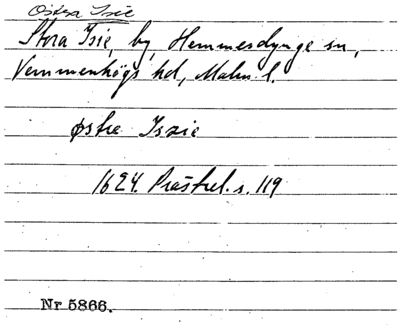 Östra Isie
Stora Isie, by, Hemmesdynge sn,
Vemmenhögs hd, Malm. l.
Østre Issie
1624. Prästrel. s. 119
Nr 5866.